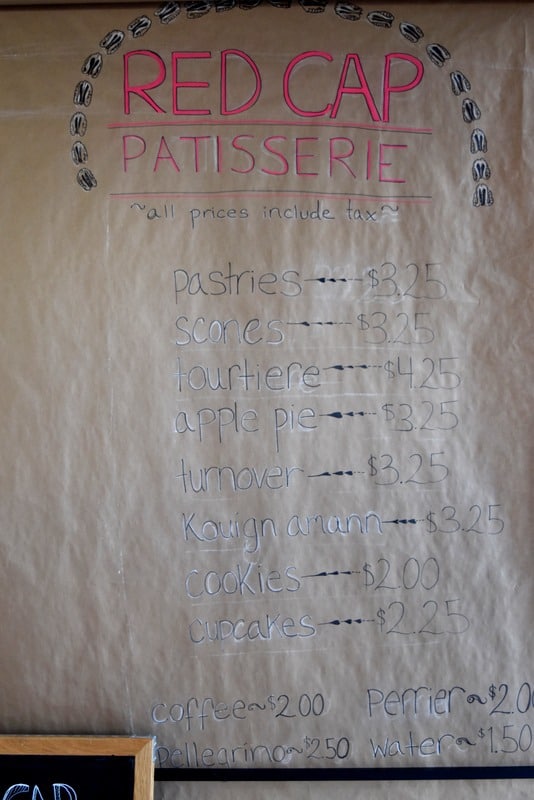 RED CAP
PATISSERIE
~all prices include tax~
pastries $3.25
scones $3.25
tourtiere $4.25
apple pie $3.25
turnover $3.25
Kouign amann $3.25
cookies $2.00
cupcakes $2.25
coffee~$2.00 Perrier~$2.00
pellegrino~$2.50 water~$1.50
CAP